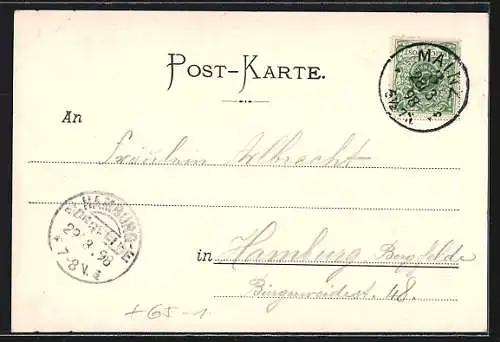 POST-KARTE.
MAINZ
98
An
Fräulein Albrecht
HAMBURG
22.3.98
7-8V.
in Hamburg Borgfelde
Bürgerweidest. 48.
+65-1